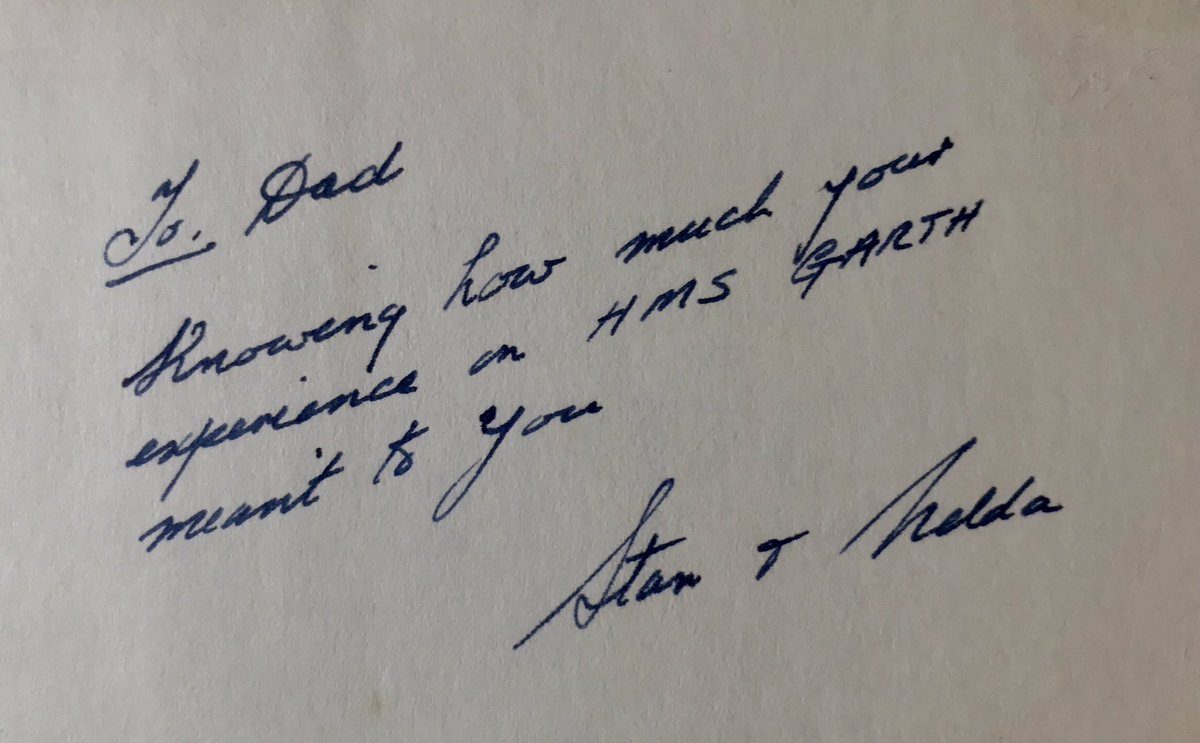 To. Dad
Knowing how much your
experience on HMS GARTH
meant to you
Stan & Nelda